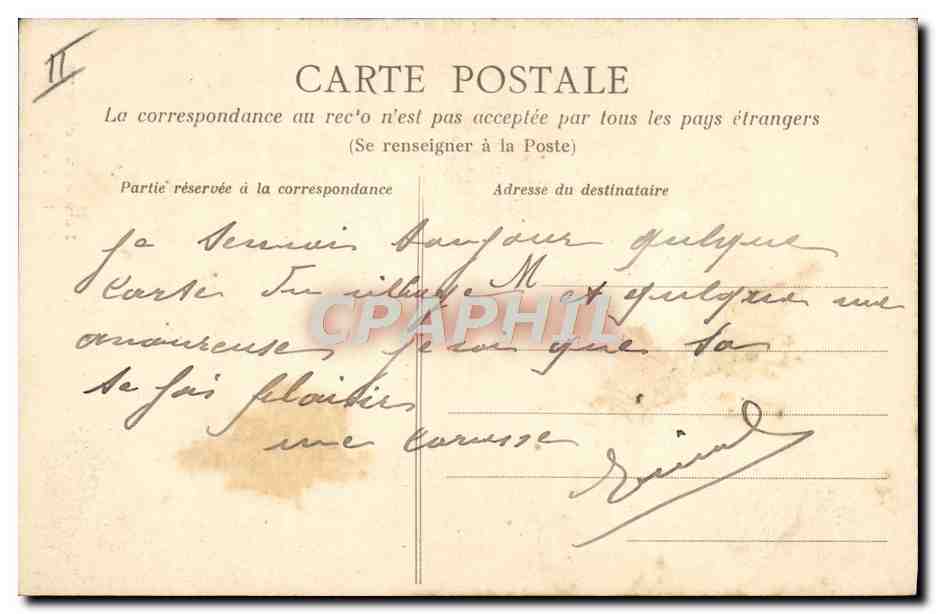 II
CARTE POSTALE
La correspondance au rec'o n'est pas acceptée par tous les pays étrangers
(Se renseigner à la Poste)
Partie réservée à la correspondance
Adresse du destinataire
je tenvoi toujour quelque
carte du village et quelque une
amoureuse, je sai que sa
te fais plaisir
une caresse
CPAPHIL